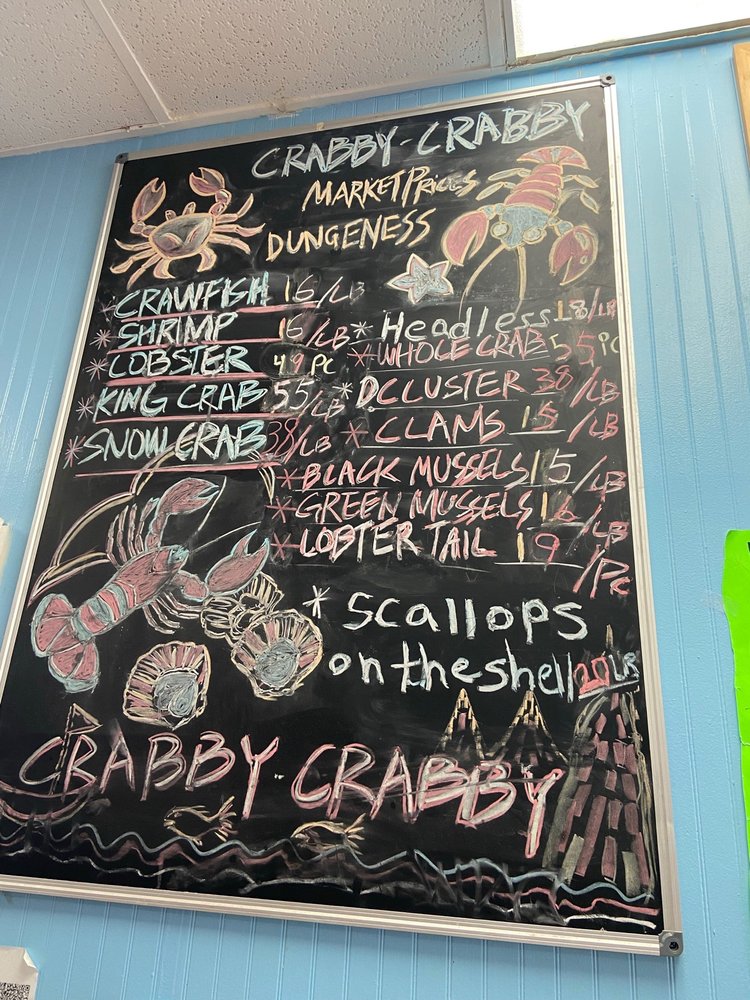 CRABBY-CRABBY
MARKET Prices
DUNGENESS
* CRAWFISH 16/LB
* SHRIMP 16/LB
* LOBSTER 49 PC
* KING CRAB 55/LB
* SNOW CRAB 38/LB
* Headless 18/LB
* WHOLE CRAB 55 PC
* D CLUSTER 38/LB
* CLAMS 15/LB
* BLACK MUSSELS 15/LB
* GREEN MUSSELS 16/LB
* LOBTER TAIL 19/PC
* scallops
on the shell 20 LB
CRABBY CRABBY